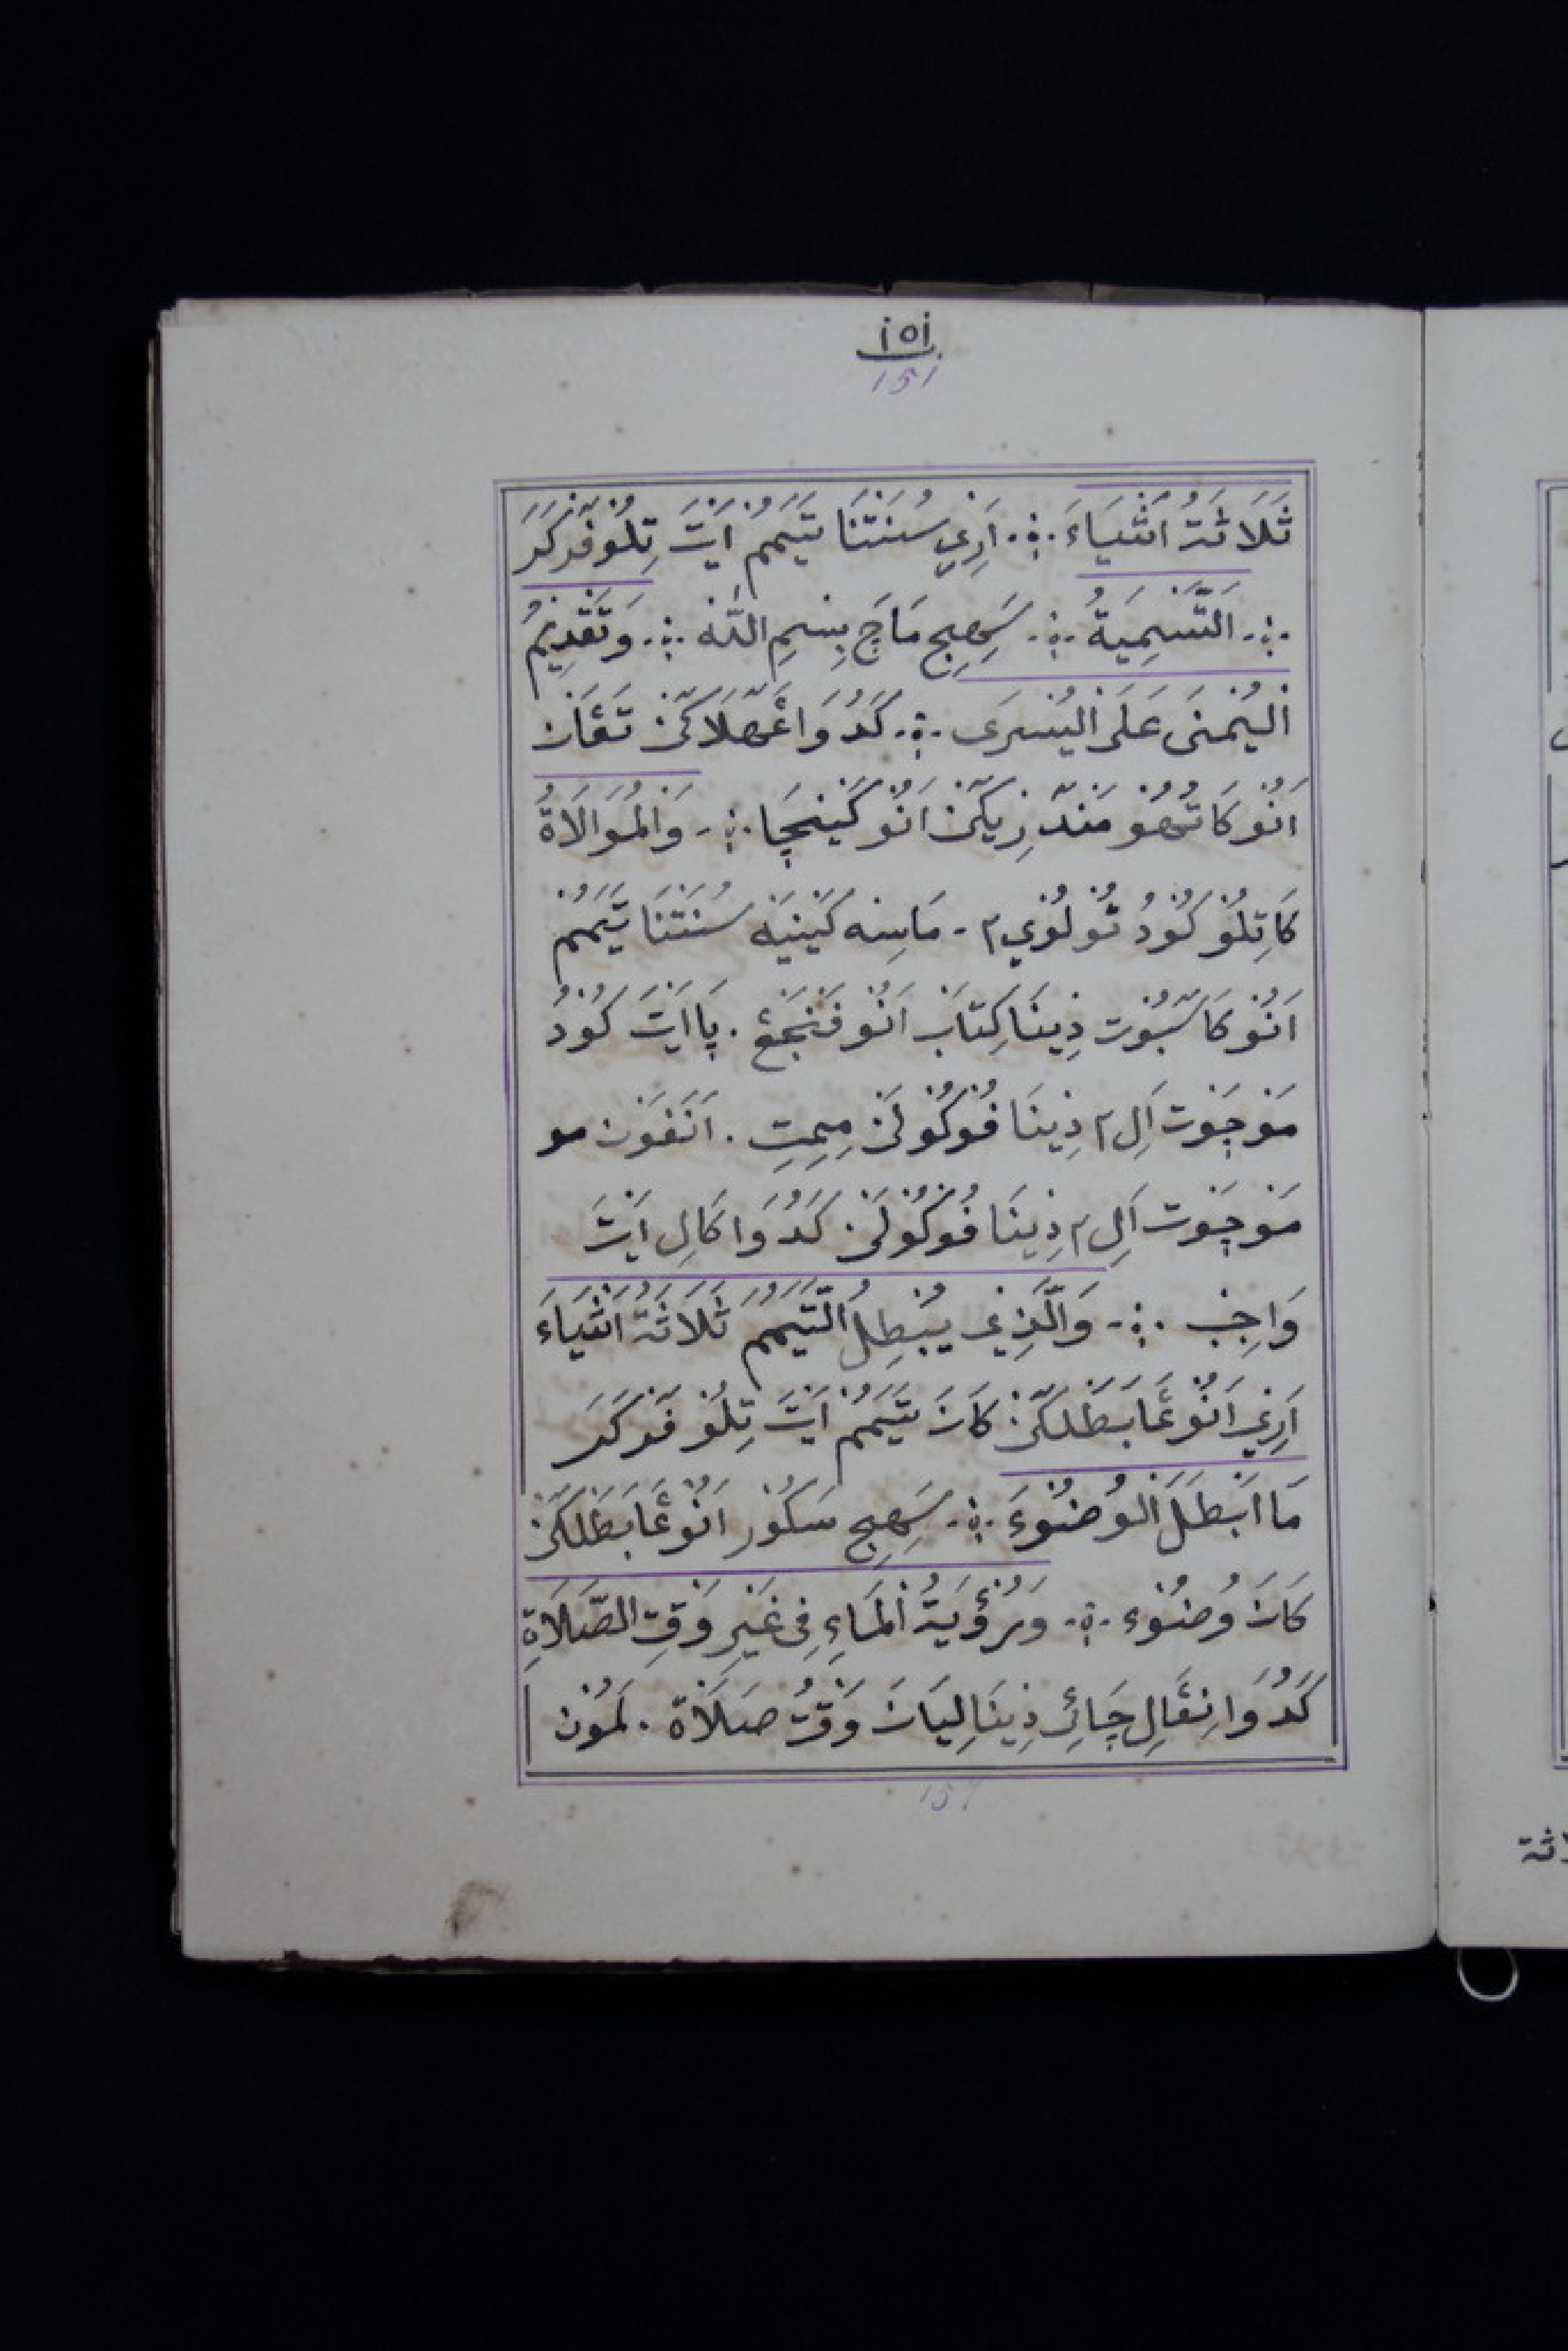 ١٥١
151
ثَلَاثَةُ اَشْيَاءَ ؞ اَرْتِي سُنَتْنَا تَيَمُمْ اَيْتَ تِلُوْ فَرْكَرَ
؞ اَلتَّسْمِيَةُ ؞ سَهِجِ مَاچَ بِسْمِ اللّٰه ؞ وَتَقْدِيْمُ
الْيُمْنَى عَلَى الْيُسْرَى ؞ كَدُوَا غَهَلَاكَنْ تَڠَان
اَنُوْ كَاتُهُوْ مَنْدَ رِيكَنْ اَنُوْ كَيْنچَا ؞ وَالْمُوَالَاةُ
كَاتِلُوْ كُوْدُ تُولُوْيِ ٢ - مَاسِه كَيْنَيْه سُنَتْنَا تَيَمُمْ
اَنُوْ كَاسَبُوْت دِينَا كِتَابْ اَنُوْ فَنْجَڠْ . چَا اَيْتَ كُوْدُ
مَوْ جَوْت اَلِ ٢ دِينَا فُوْكُوْلَنْ مِيمِتِ . اَنَفَوْن مو
مَوْ جَوْت اَلِ ٢ دِينَا فُوْكُوْلَنْ كَدُوَا كَالِ اَيْتَ
وَاجِبْ ؞ وَالَّذِيْ يُبْطِلُ التَّيَمُمَ ثَلَاثَةُ اَشْيَاءَ
اَرْتِي اَنُوْ غَابَطَلَكَنْ كَانَ تَيَمُمْ اَيْتَ تِلُوْ فَرْكَرَ
مَا اَبْطَلَ الْوُضُوْءَ ؞ سَهِجِ سَكُوْر اَنُوْ غَابَطَلَكَنْ
كَانَ وُضُوْء ؞ وَرُؤْيَةُ الْمَاءِ فِى غَيْرِ وَقْتِ الصَّلَاةِ
كَدُوَا نِڠَالِ چَائِ دِينَا لِيَانَ وَقْتُ صَلَاة . لَمُوْن
151